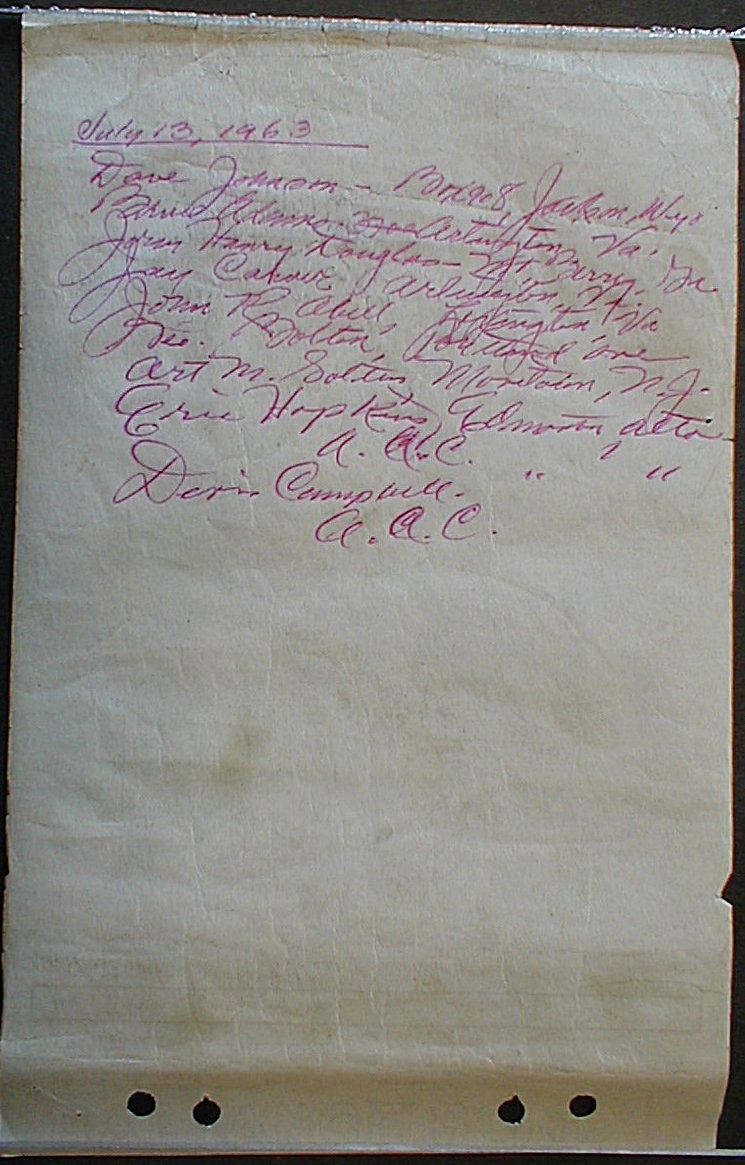 July 13, 1963
Dave Johnson - Box 908, Jackson, Wyo.
Adams Arlington, Va.
John Henry Douglas - Mt. Berry, Ga
Jay Arlington, Va
John R. Abill Arlington Va
Geo. Bolton, Portland ore
Art M. Soltis, N.J.
Eric Hopkins, Edmonton, Alta
A. A. C. " , "
Campbell.
A. A. C.